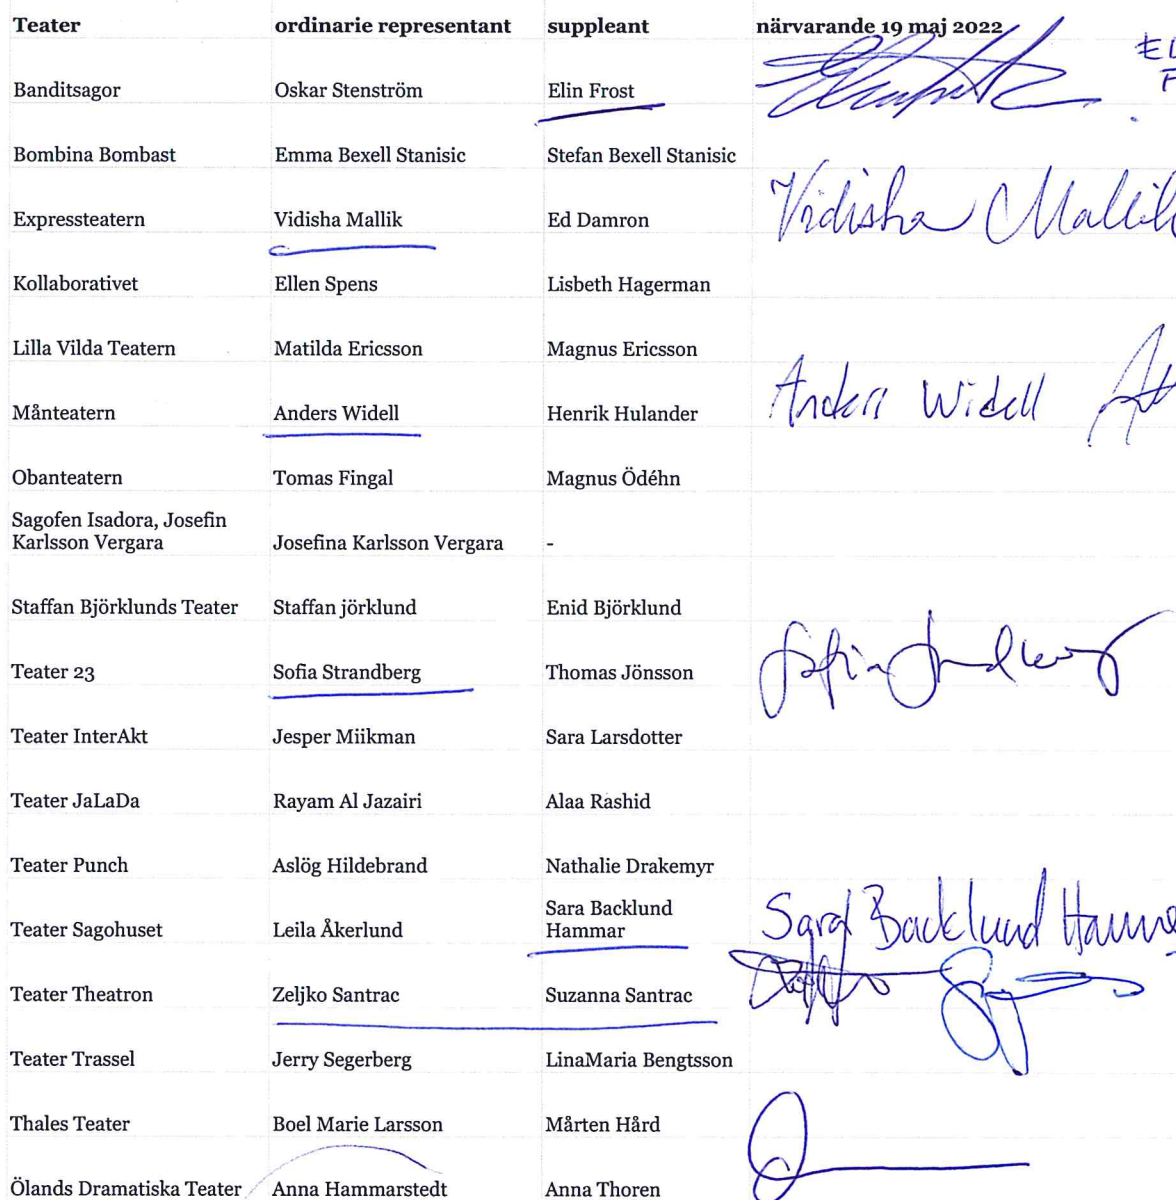 Teater ordinarie representant suppleant närvarande 19 maj 2022
Banditsagor Oskar Stenström Elin Frost
Bombina Bombast Emma Bexell Stanisic Stefan Bexell Stanisic
Expressteatern Vidisha Mallik Ed Damron Vidisha Mallik
Kollaborativet Ellen Spens Lisbeth Hagerman
Lilla Vilda Teatern Matilda Ericsson Magnus Ericsson
Månteatern Anders Widell Henrik Hulander Anders Widell
Obanteatern Tomas Fingal Magnus Ödéhn
Sagofen Isadora, Josefin
Karlsson Vergara Josefina Karlsson Vergara -
Staffan Björklunds Teater Staffan jörklund Enid Björklund
Teater 23 Sofia Strandberg Thomas Jönsson
Teater InterAkt Jesper Miikman Sara Larsdotter
Teater JaLaDa Rayam Al Jazairi Alaa Rashid
Teater Punch Aslög Hildebrand Nathalie Drakemyr
Sara Backlund
Teater Sagohuset Leila Åkerlund Hammar Sara Backlund
Teater Theatron Zeljko Santrac Suzanna Santrac
Teater Trassel Jerry Segerberg LinaMaria Bengtsson
Thales Teater Boel Marie Larsson Mårten Hård
Ölands Dramatiska Teater Anna Hammarstedt Anna Thoren